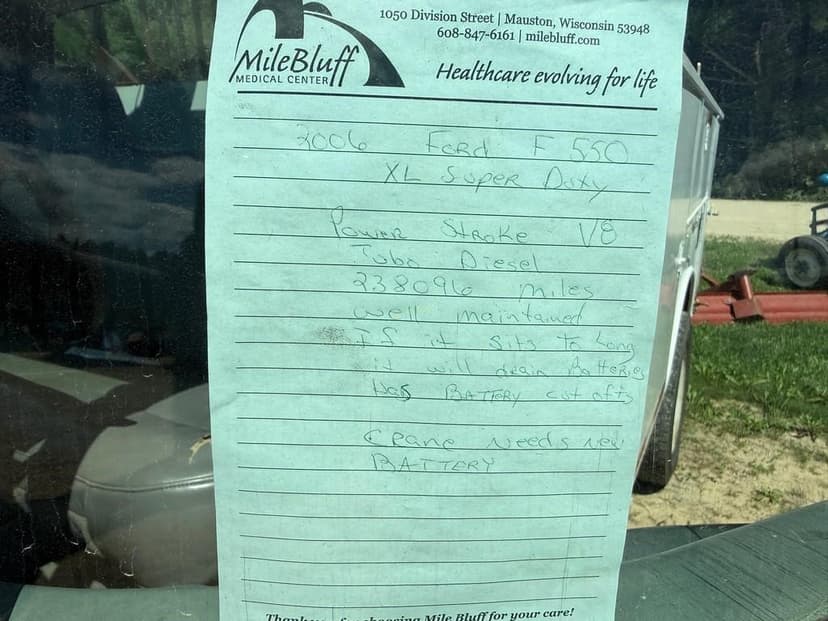 1050 Division Street | Mauston, Wisconsin 53948
608-847-6161 | milebluff.com
MileBluff
MEDICAL CENTER
Healthcare evolving for life
2006 Ford F 550
XL Super Duty
Power Stroke V8
Tubo Diesel
238096 miles
well maintained
If it sits to long
it will drain Batteries
Has BATTERY cut offs
Crane needs new
BATTERY
Thank for choosing Mile Bluff for your care!